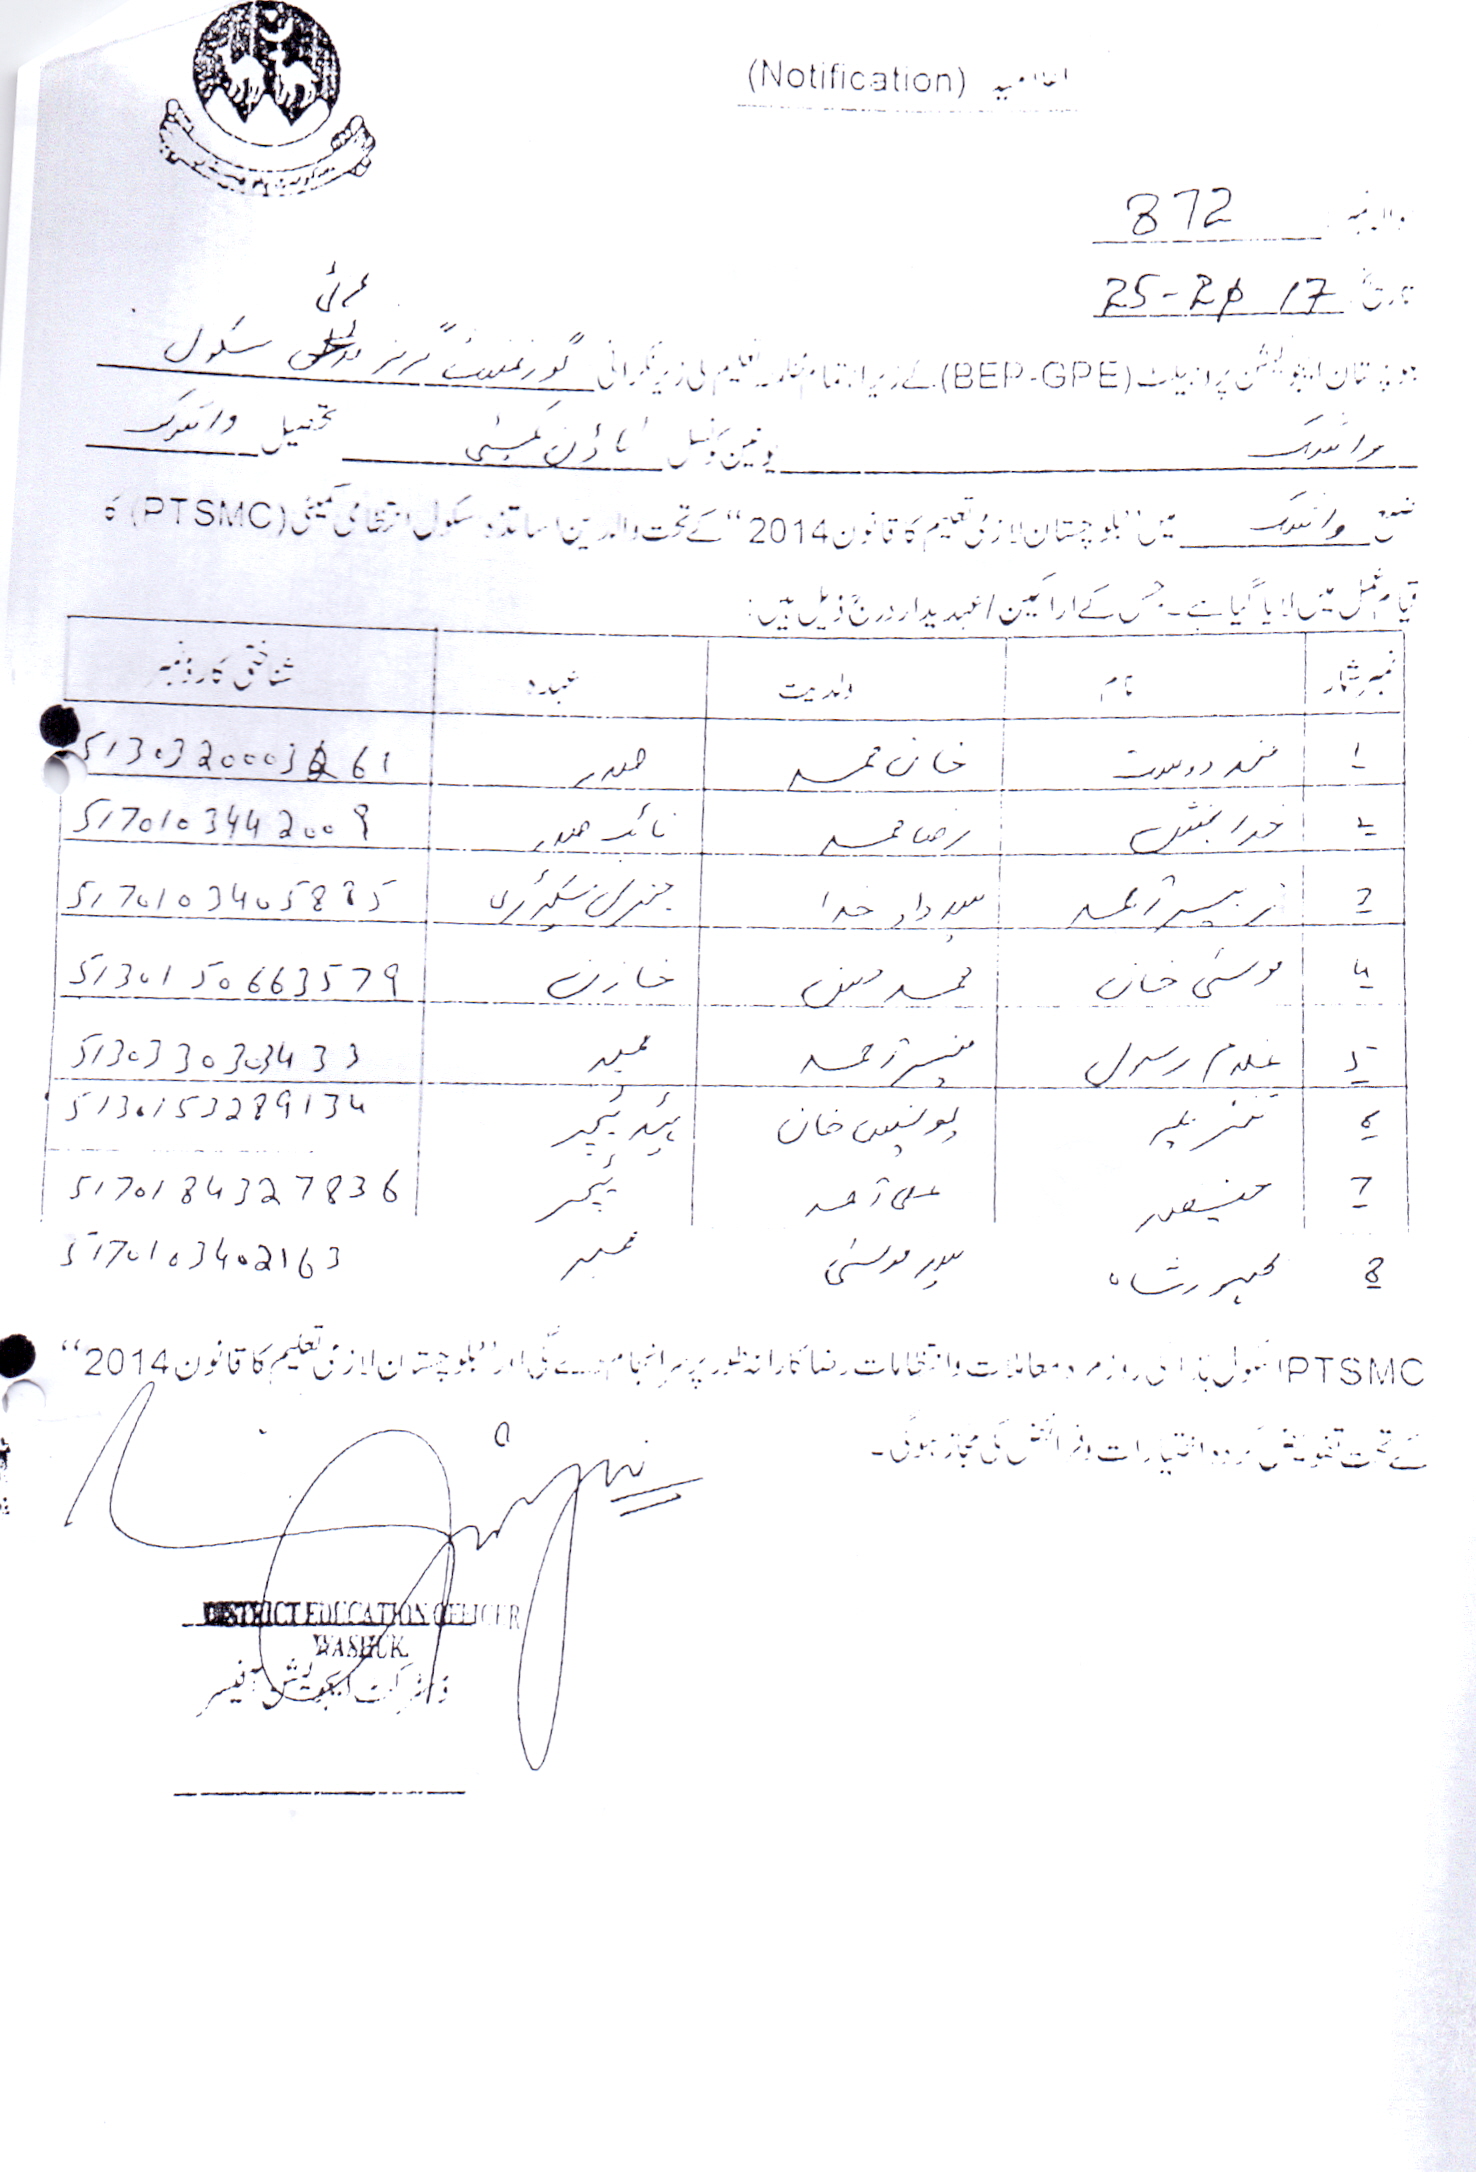 (Notification)
حوالہ نمبر 372
تاریخ 25-2 17
بلوچستان ایجوکیشن پراجیکٹ (BEP-GPE) کے زیر اہتمام محکمہ تعلیم کی زیر نگرانی گورنمنٹ گرلز پرائمری سکول
واشک یونین کونسل ٹاؤن کمیٹی تحصیل واشک
ضلع واشک میں "بلوچستان لازمی تعلیم کا قانون 2014" کے تحت والدین اساتذہ سکول انتظامی کمیٹی (PTSMC) کا
قیام عمل میں لایا گیا ہے۔ جس کے اراکین / عہدیدار درج ذیل ہیں:
نمبر شمار نام ولدیت عہدہ شناختی کارڈ نمبر
1 محمد دوست خان محمد صدر
2 خدا بخش رضا محمد نائب صدر 5170103442009
3 جنرل سیکرٹری 5170103405885
4 موسیٰ خان محمد خازن 5130150663579
5 غلام رسول ممبر 5130330303433
6 خان ہیڈ ٹیچر 5130153289134
7 علی احمد ٹیچر 5170184327836
8 ممبر 5170103402163
PTSMC سکول ہذا کی روز مرہ معاملات و انتظامات رضا کارانہ طور پر سرانجام دے گی اور "بلوچستان لازمی تعلیم کا قانون 2014"
کے تحت تفویض کردہ اختیارات و فرائض کی مجاز ہوگی۔
DISTRICT EDUCATION OFFICER
WASHUK
ڈسٹرکٹ ایجوکیشن آفیسر